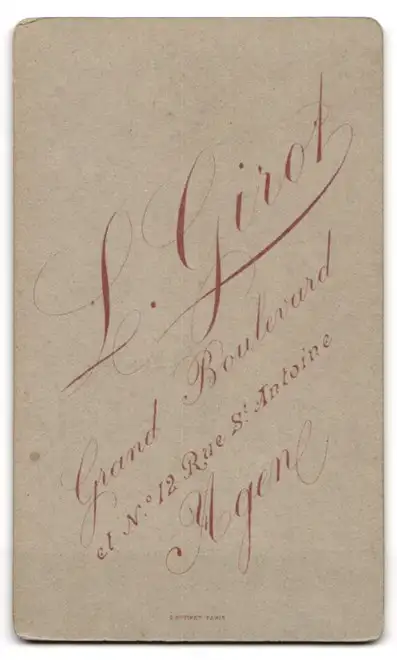 L. Girot
Grand Boulevard
et N.º 12 Rue St. Antoine
Agen
PARIS